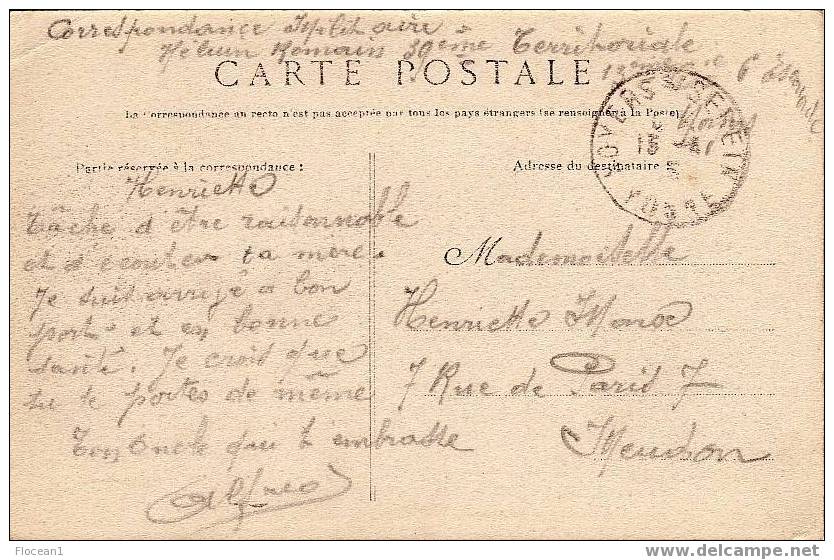 Correspondance Militaire
Romain 30ème Territoriale
6e Escouade
CARTE POSTALE
La Correspondance au recto n'est pas acceptée par tous les pays étrangers (se renseigner à la Poste)
Partie réservée à la correspondance :
Adresse du destinataire
POSTE
13
Henriette
tâche d'être raisonnable
et d'écouter ta mère.
Je suit arrivé a bon
port et en bonne
santé. Je crois que
tu te portes de même
Ton Oncle qui t'embrasse
Alfred
Mademoiselle
Henriette
7 Rue de Paris 7
Meudon
Flocean1
www.delcampe.net